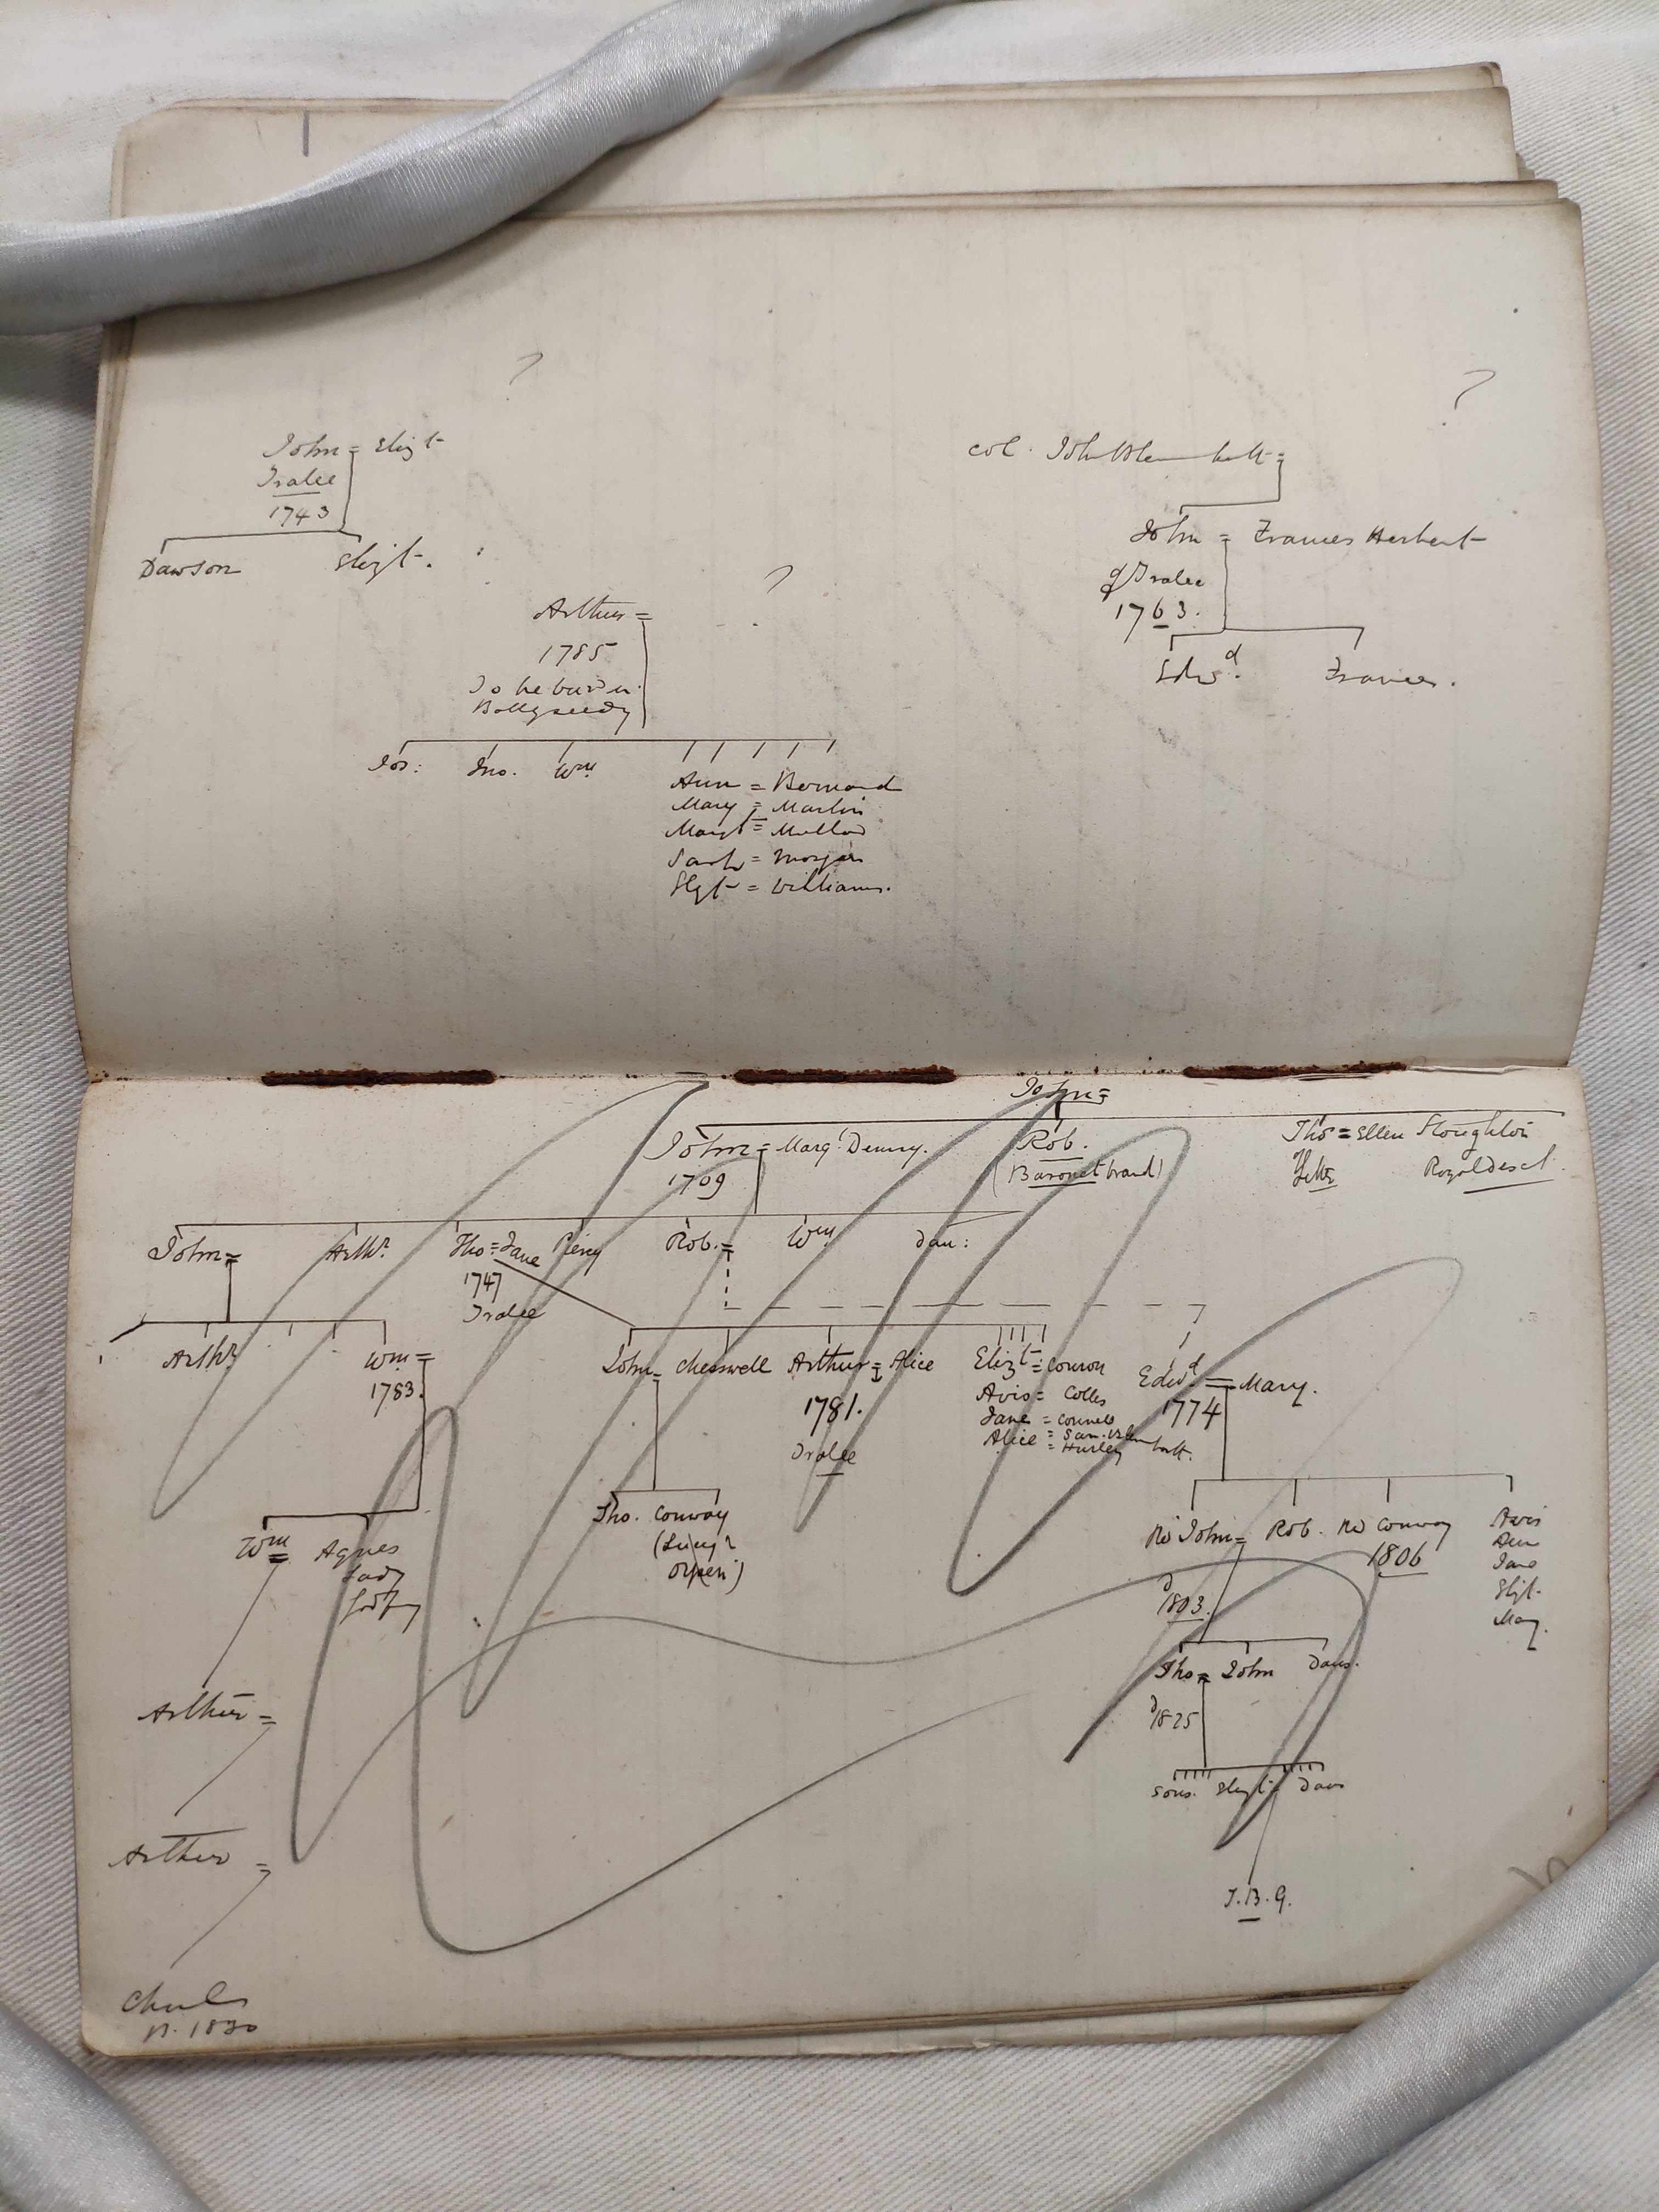 ?
?
John = Elizt
Tralee
1743
Dawson Elizt.
Col. John Blennerhassett =
John = Frances Herbert
of Tralee
1763.
Edwd. Frances.
?
Arthur =
1785
To be bur'd in
Ballyseedy
Jos: Jno. Wm
Ann = Bernard
Mary = Martin
Margt = Mullow
Sarah = Morgan
Elizt = Williams.
John =
John = Marg. Denny. Rob. Tho = Ellen Stoughton
1709 (Baronet brand) Royal Desct.
John = Arthr. Tho = Jane Percy Rob. = Wm Dau:
1747
Tralee
Arthr Wm =
1783.
John = Cherswell Arthur = Alice
1781.
Tralee
Elizt = Conron
Avis = Colles
Jane = Connell
Alice = Sam. Blennerhatt.
= Hurley
Edwd. = Mary.
1774
Wm Agnes
Lady
Godfy
Tho. Conway
Rd John = Rob. Rd Conway
1806
Avis
Ann
Jane
Elizt.
Mary.
d 1803.
Tho = John Daus.
d 1825
Sons. Elizt = Daus
T.B.G.
Arthur =
Arthur =
Charles
n. 1830